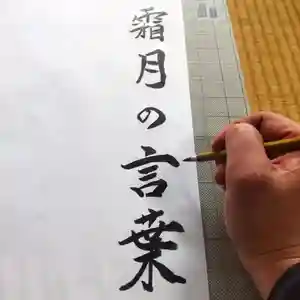 霜月の言葉